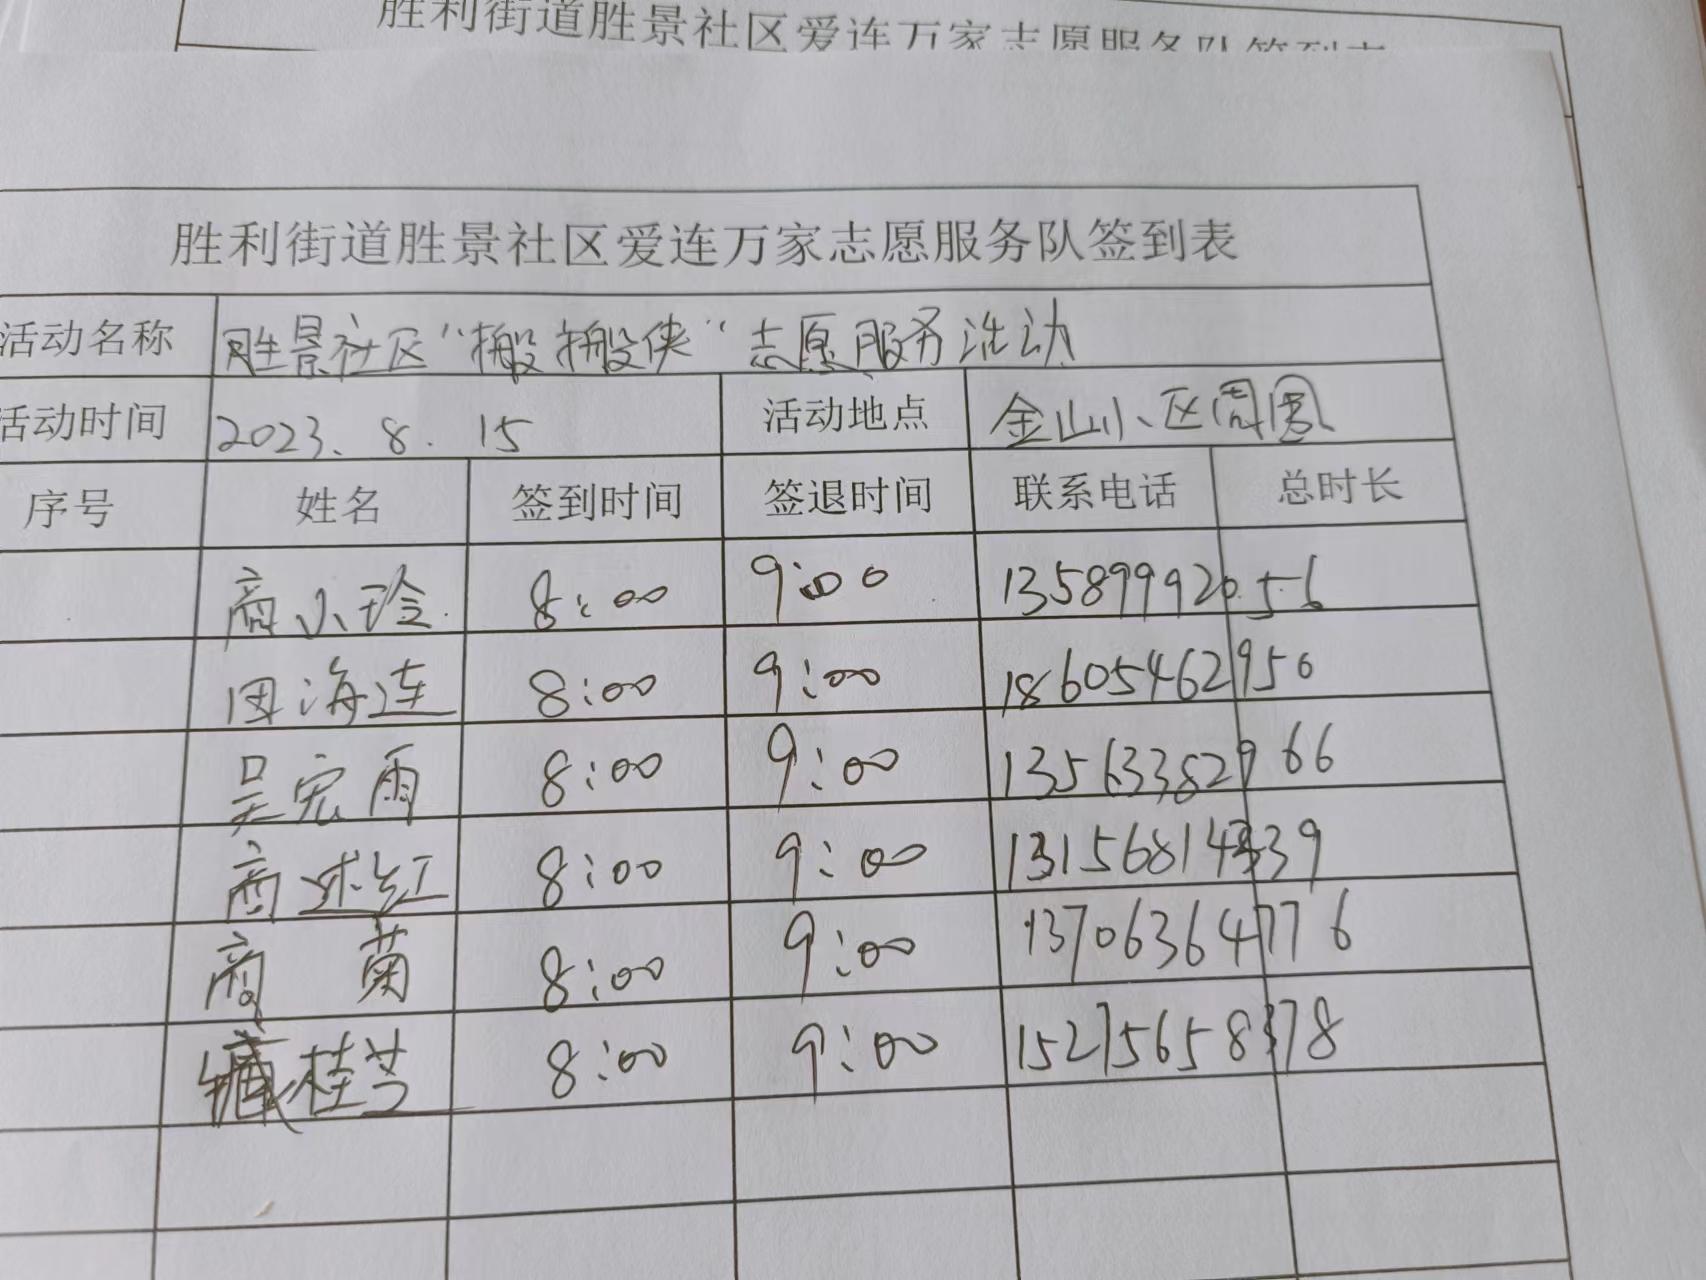 胜利街道胜景社区爱连万家志愿服务队签到表
胜利街道胜景社区爱连万家志愿服务队签到表
活动名称 胜景社区“搬搬侠”志愿服务活动
活动时间 2023.8.15 活动地点 金山小区周围
序号 姓名 签到时间 签退时间 联系电话 总时长
商小玲 8:00 9:00 13589992056
田海连 8:00 9:00 18605462950
吴宏雨 8:00 9:00 13563382966
商述红 8:00 9:00 13156814339
商菊 8:00 9:00 13706364776
臧桂芝 8:00 9:00 15275658378